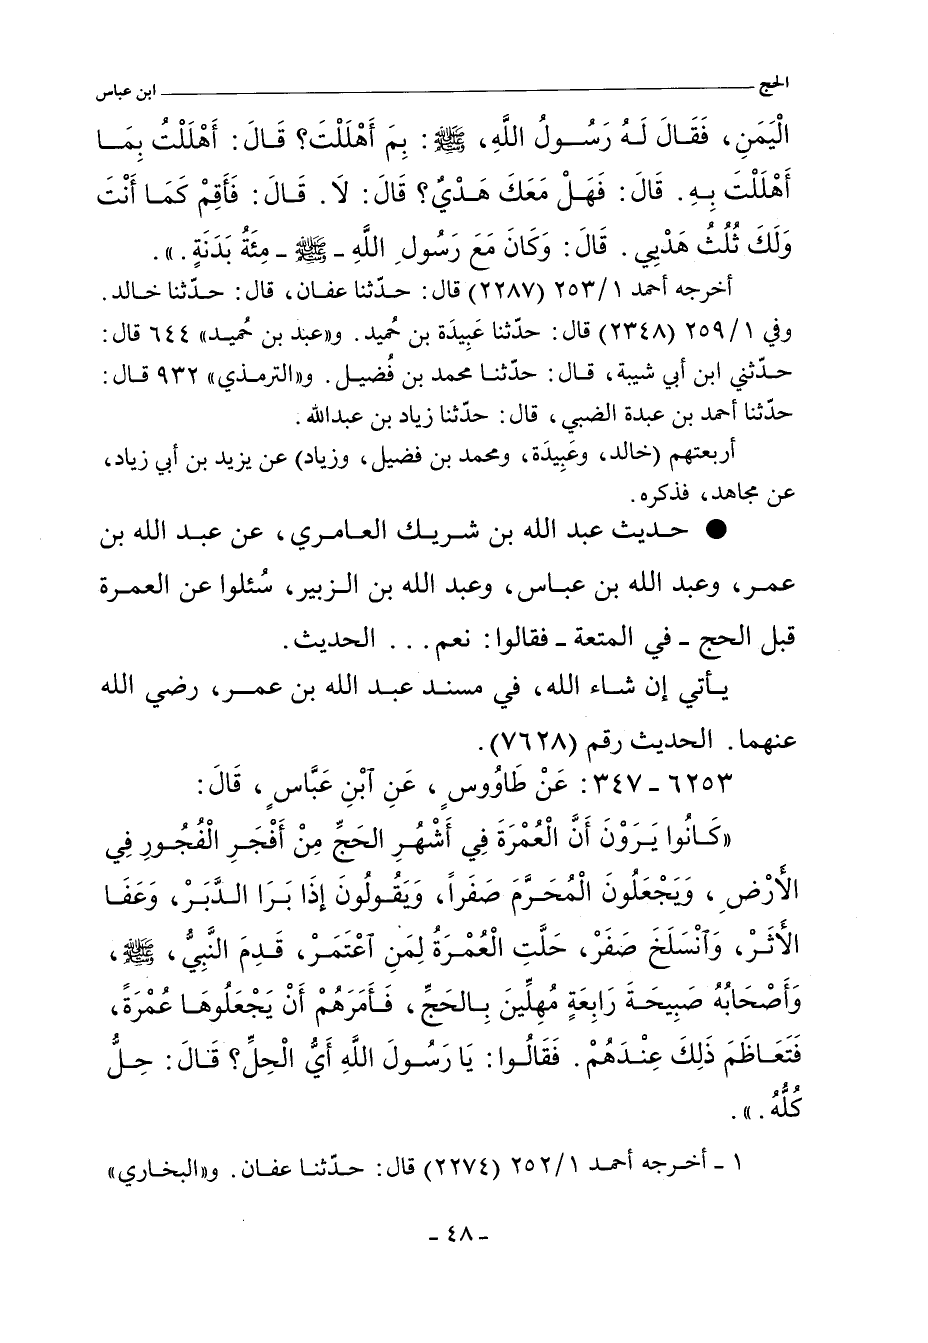 الحج ــــــــــــــــــــــــــــــــــــــــــــــــ ابن عباس
الْيَمَنِ، فَقَالَ لَهُ رَسُولُ اللَّهِ، ﷺ: بِمَ أَهْلَلْتَ؟ قَالَ: أَهْلَلْتُ بِمَا
أَهْلَلْتَ بِهِ. قَالَ: فَهَلْ مَعَكَ هَدْيٌ؟ قَالَ: لَا. قَالَ: فَأَقِمْ كَمَا أَنْتَ
وَلَكَ ثُلُثُ هَدْيِي. قَالَ: وَكَانَ مَعَ رَسُولِ اللَّهِ ـ ﷺ ـ مِئَةُ بَدَنَةٍ.».
أخرجه أحمد ١/٢٥٣ (٢٢٨٧) قال: حدّثنا عفان، قال: حدّثنا خالد.
وفي ١/٢٥٩ (٢٣٤٨) قال: حدّثنا عَبِيدَة بن حُميد. و«عبد بن حُميد» ٦٤٤ قال:
حدّثني ابن أبي شيبة، قال: حدّثنا محمد بن فُضيل. و«الترمذي» ٩٣٢ قال:
حدّثنا أحمد بن عبدة الضبي، قال: حدّثنا زياد بن عبدالله.
أربعتهم (خالد، وعَبِيدَة، ومحمد بن فضيل، وزياد) عن يزيد بن أبي زياد،
عن مجاهد، فذكره.
● حديث عبد الله بن شريك العامري، عن عبد الله بن
عمر، وعبد الله بن عباس، وعبد الله بن الزبير، سُئلوا عن العمرة
قبل الحج ـ في المتعة ـ فقالوا: نعم... الحديث.
يأتي إن شاء الله، في مسند عبد الله بن عمر، رضي الله
عنهما. الحديث رقم (٧٦٢٨).
٦٢٥٣ ـ ٣٤٧: عَنْ طَاوُوسٍ، عَنِ آبْنِ عَبَّاسٍ، قَالَ:
«كَانُوا يَرَوْنَ أَنَّ الْعُمْرَةَ فِي أَشْهُرِ الحَجِّ مِنْ أَفْجَرِ الْفُجُورِ فِي
الأَرْضِ، وَيَجْعَلُونَ الْمُحَرَّمَ صَفَراً، وَيَقُولُونَ إِذَا بَرَا الدَّبَرْ، وَعَفَا
الأَثَرْ، وَآنْسَلَخَ صَفَرْ، حَلَّتِ الْعُمْرَةُ لِمَنِ آعْتَمَرْ، قَدِمَ النَّبِيُّ، ﷺ،
وَأَصْحَابُهُ صَبِيحَةَ رَابِعَةٍ مُهِلِّينَ بِالحَجِّ، فَأَمَرَهُمْ أَنْ يَجْعَلُوهَا عُمْرَةً،
فَتَعَاظَمَ ذَلِكَ عِنْدَهُمْ. فَقَالُوا: يَا رَسُولَ اللَّهِ أَيُّ الْحِلِّ؟ قَالَ: حِلٌّ
كُلُّهُ.».
١ ـ أخرجه أحمد ١/٢٥٢ (٢٢٧٤) قال: حدّثنا عفان. و«البخاري»
ـ ٤٨ ـ